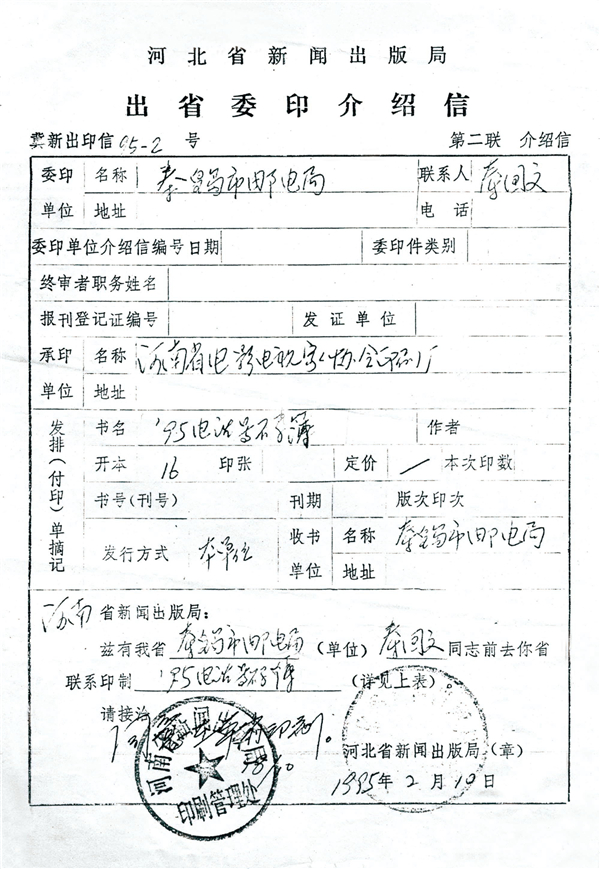 河北省新闻出版局
出省委印介绍信
冀新出印信95-2号 第二联 介绍信
委印 名称 秦皇岛市邮电局 联系人 秦国文
单位 地址 电话
委印单位介绍信编号日期 委印件类别
终审者职务姓名
报刊登记证编号 发证单位
承印 名称 河南省电影电视家协会印刷厂
单位 地址
发排(付印)单摘记
书名 '95电话号码簿 作者
开本 16 印张 定价 / 本次印数
书号(刊号) 刊期 版次印次
发行方式 本单位 收书 名称 秦皇岛市邮电局
单位 地址
河南省新闻出版局:
兹有我省秦皇岛市邮电局(单位)秦国文同志前去你省
联系印制'95电话号码簿(详见上表)。
请接洽
河南省新闻出版局
印刷管理处
河北省新闻出版局(章)
1995年2月10日